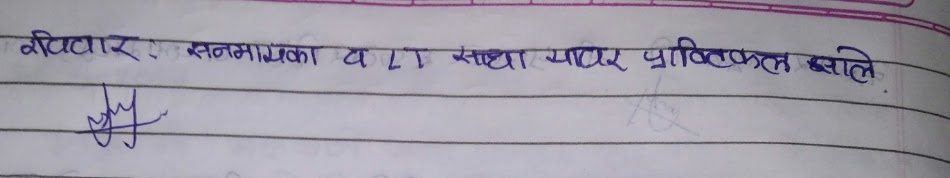 रविवार : सनमायका व LT साधा यावर प्रात्यिकल झाले.